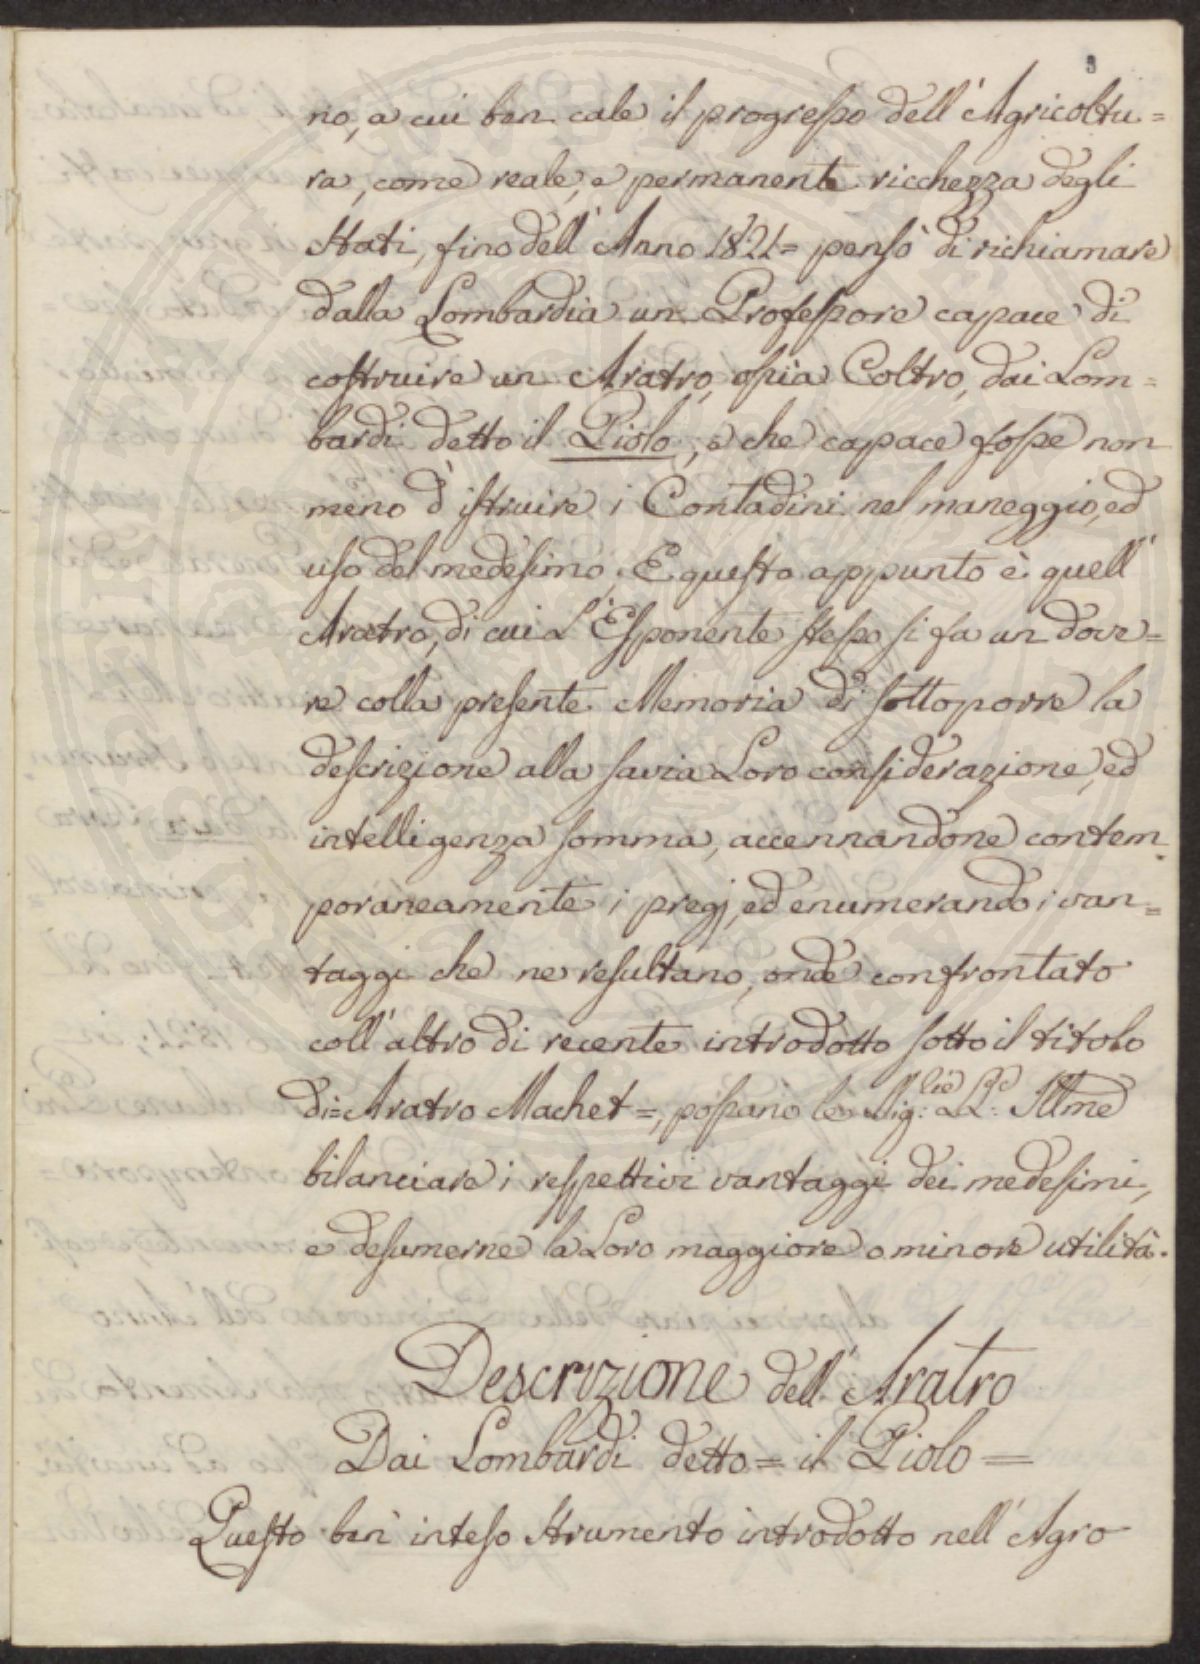 3
no, a cui ben cale il progresso dell'Agricoltu=
ra, come reale, e permanente ricchezza degli
Stati, fino dell'Anno 1821= pensò di richiamare
dalla Lombardia un Professore capace di
costruire un Aratro, ossia Coltro, dai Lom=
bardi detto il Piolo, e che capace fosse non
meno d'istruire i Contadini nel maneggio, ed
uso del medesimo, E questo appunto è quell'
Aratro, di cui L'Esponente stesso si fa un dove=
re colla presente Memoria di sottoporre la
descrizione alla savia Loro considerazione, ed
intelligenza somma, accennandone contem
poraneamente i pregj, ed enumerando i van=
taggi che ne resultano, onde confrontato
coll'altro di recente introdotto sotto il titolo
di= Aratro Machet=, possano le Sig:rie LL: Illme
bilanciare i respettivi vantaggi dei medesimi,
e desumerne la Loro maggiore o minore utilità.
Descrizione dell'Aratro
Dai Lombardi detto= il Piolo=
Questo ben inteso strumento introdotto nell'Agro